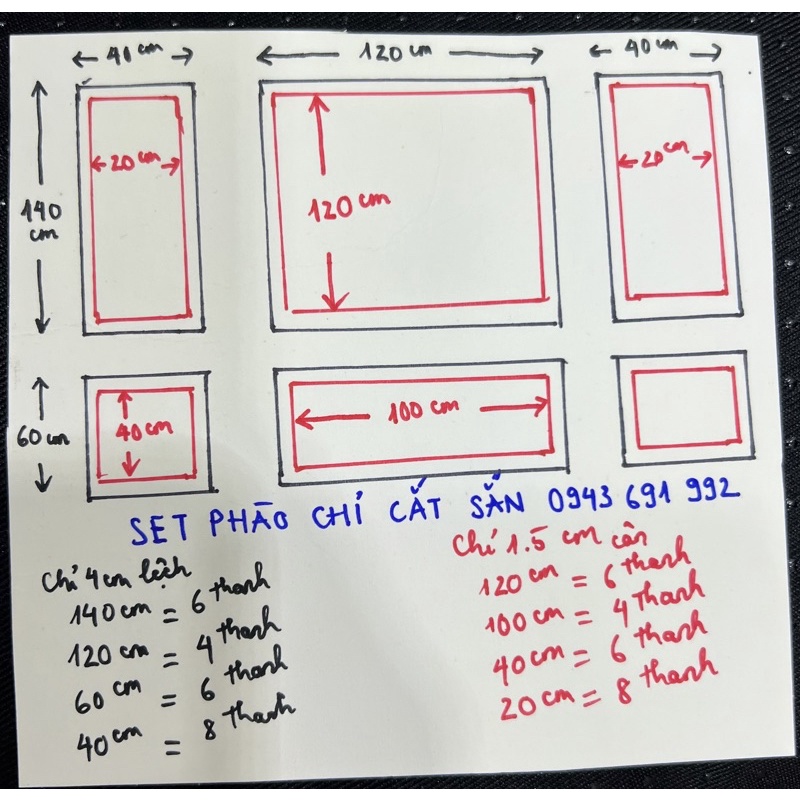 40 cm
120 cm
40 cm
20 cm
120 cm
20 cm
140 cm
60 cm
40 cm
100 cm
SET PHÀO CHỈ CẮT SẴN 0943 691 992
Chỉ 4 cm lệch
140 cm = 6 thanh
120 cm = 4 thanh
60 cm = 6 thanh
40 cm = 8 thanh
Chỉ 1.5 cm cân
120 cm = 6 thanh
100 cm = 4 thanh
40 cm = 6 thanh
20 cm = 8 thanh